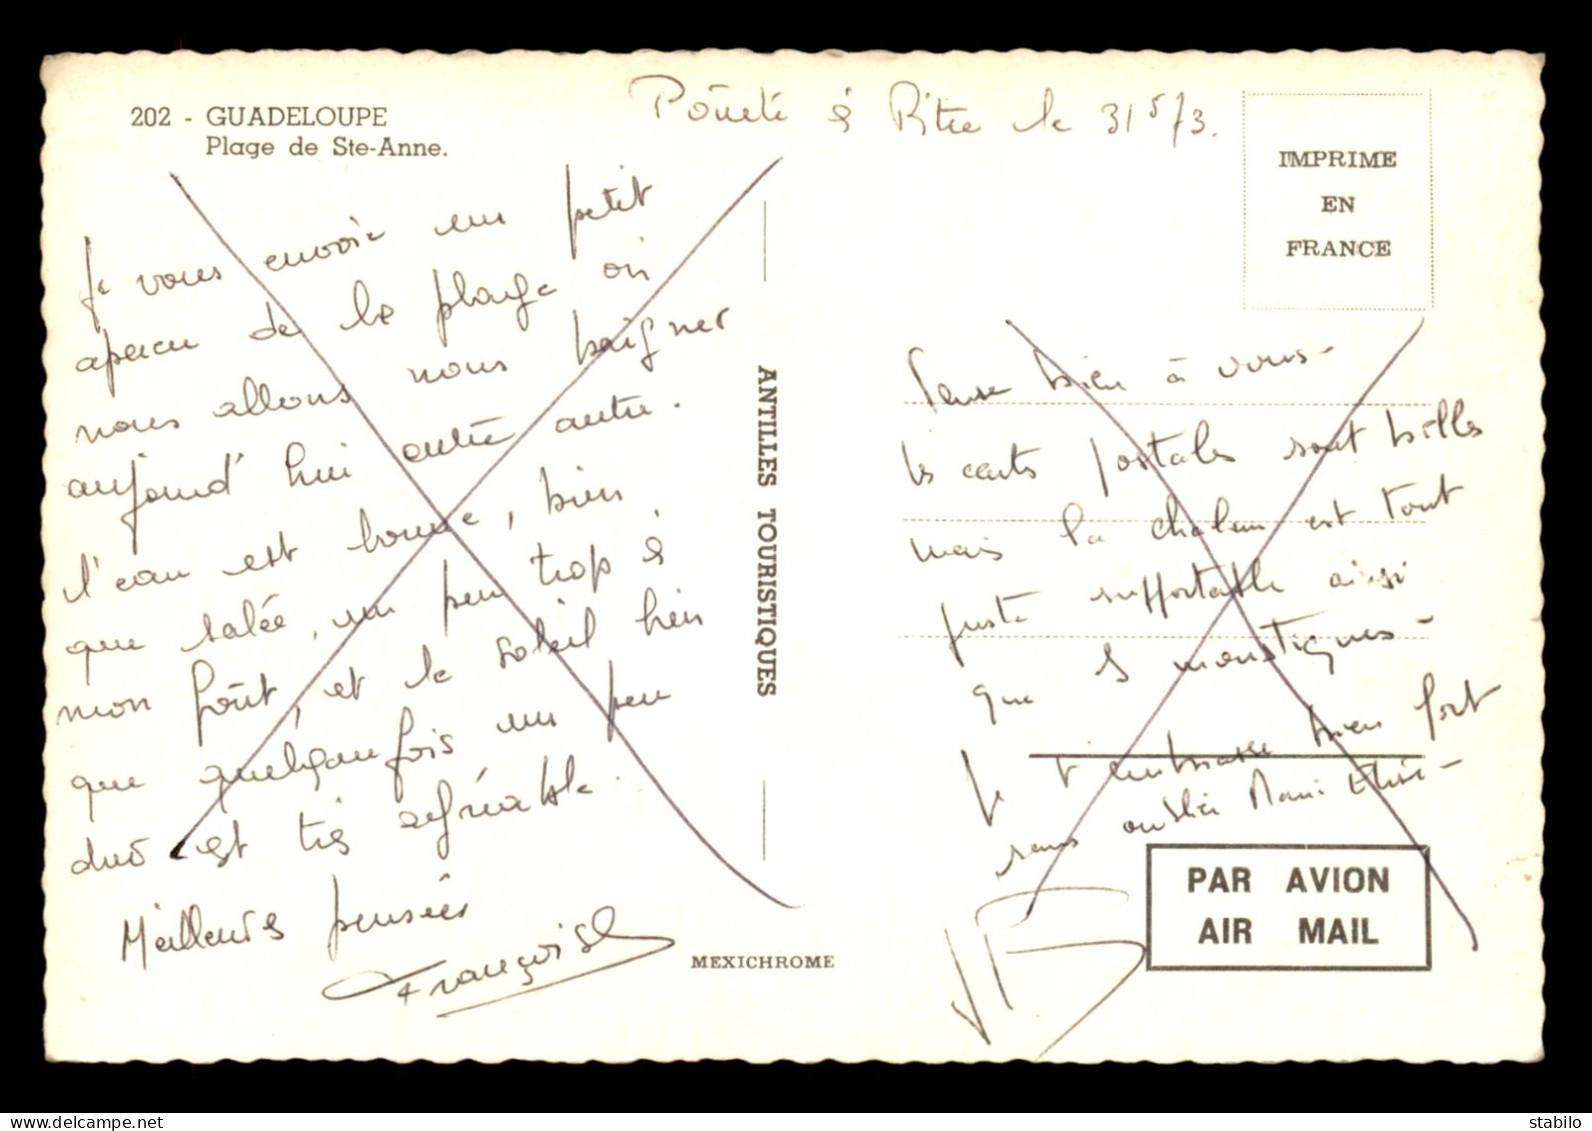 202 - GUADELOUPE
Plage de Ste-Anne.
Pointe à Pitre le 31 5 73.
IMPRIME
EN
FRANCE
Je vous envoie un petit
apercu de la plage où
nous allons nous baigner
aujourd'hui entre autre.
l'eau est bonne, bien
que salée, un peu trop à
mon goût, et le soleil bien
que quelquefois un peu
dur est très agréable.
Meilleures pensées
Françoise
ANTILLES TOURISTIQUES
MEXICHROME
Pense bien à vous -
les cartes postales sont belles
mais la chaleur est tout
juste supportable ainsi
que les moustiques -
Je t'embrasse bien fort
sans oublier
PAR AVION
AIR MAIL
delcampe.net
stabilo